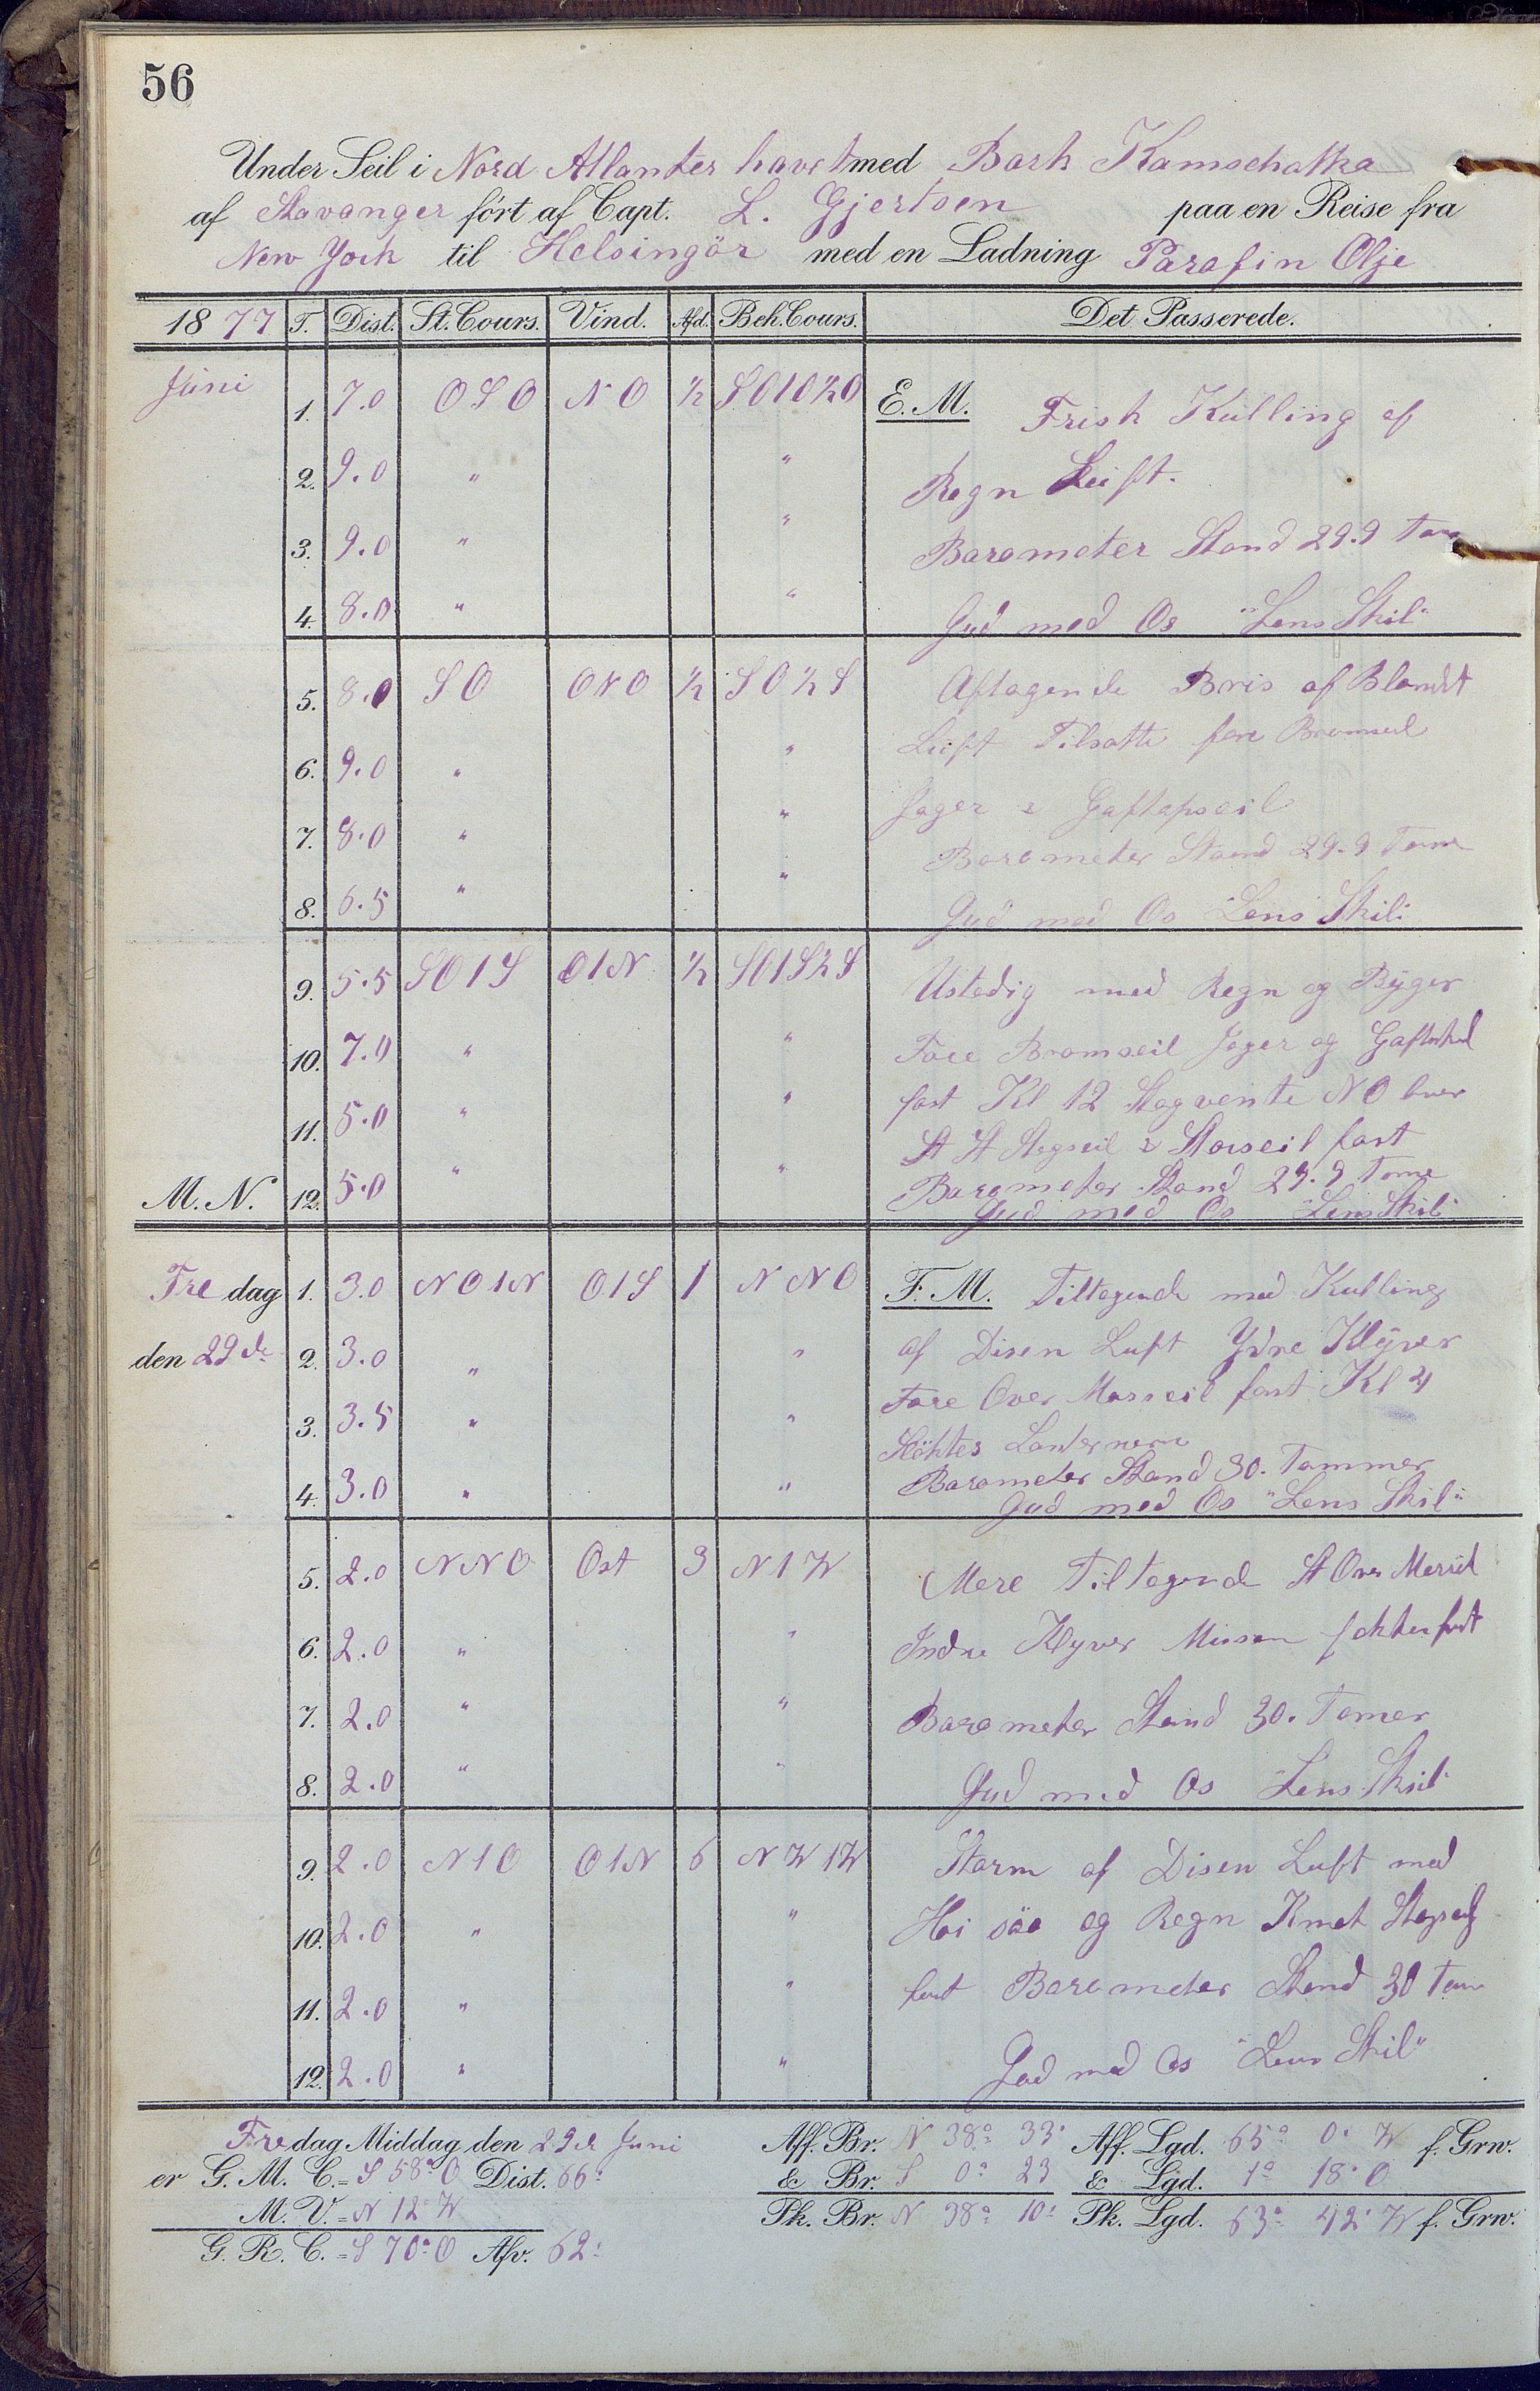 56
Under Seil i Nord Atlanter havet med Bark Kamschatka
af Stavanger ført af Capt. L. Gjertsen paa en Reise fra
New York til Helsingör med en Ladning Parafin Olje
1877 T. Dist. St. Cours. Vind. Afd. Beh. Cours. Det Passerede.
Juni 1. 7.0 OSO NO ½ SO1O½O E. M. Frisk Kulling af
2. 9.0 " " Regn Luft.
3. 9.0 " " Barometer Stand 29.9 Tom
4. 8.0 " " Gud med Os "Lens Skil"
5. 8.0 SO ONO ½ SO½S Aftagende Bris af Blandet
6. 9.0 " " Luft Tilsatte fore Bramseil
7. 8.0 " " Jager & Gaftopseil
Barometer Stand 29.9 Tome
8. 6.5 " " Gud med Os "Lens Skil"
9. 5.5 SO1S O1N ½ SO1S½S Ustadig med Regn og Byger
10. 7.0 " " Fore Bramseil Jager og
11. 5.0 " " fast Kl 12 Stagvente NO over
St St Stagseil & Storseil fast
Barometer Stand 29.9 Tome
M. N. 12. 5.0 " " Gud med Os "Lens Skil"
Fredag 1. 3.0 NO1N O1S 1 NNO F. M. Tiltagende med Kulling
den 29de 2. 3.0 " " af Disen Luft Ydre Klyver
3. 3.5 " " Fore Over Mersseil fast Kl 4
Slöktes Lanternerne
Barometer Stand 30. Tommer
4. 3.0 " " Gud med Os "Lens Skil"
5. 2.0 NNO Ost 3 N1W Mere Tiltagende St Over Merseil
6. 2.0 " " Indre Klyver Missan fast
7. 2.0 " " Barometer Stand 30. Tomer
8. 2.0 " " Gud med Os "Lens Skil"
9. 2.0 N1O O1N 6 NW1W Storm af Disen Luft med
10. 2.0 " " Höi söe og Regn
11. 2.0 " " fast Barometer Stand 30 Tom
12. 2.0 " " Gud med Os "Lens Skil"
Fredag Middag den 29de Juni Aff. Br. N 38° 33' Aff. Lgd. 65° 0' W f. Grw.
er G. M. C. = S 58° O Dist. 66' & Br. S 0° 23 & Lgd. 1° 18' O
M. V. = N 12° W Pk. Br. N 38° 10' Pk. Lgd. 63° 42' W f. Grw.
G. R. C. = S 70° O Afv. 62'